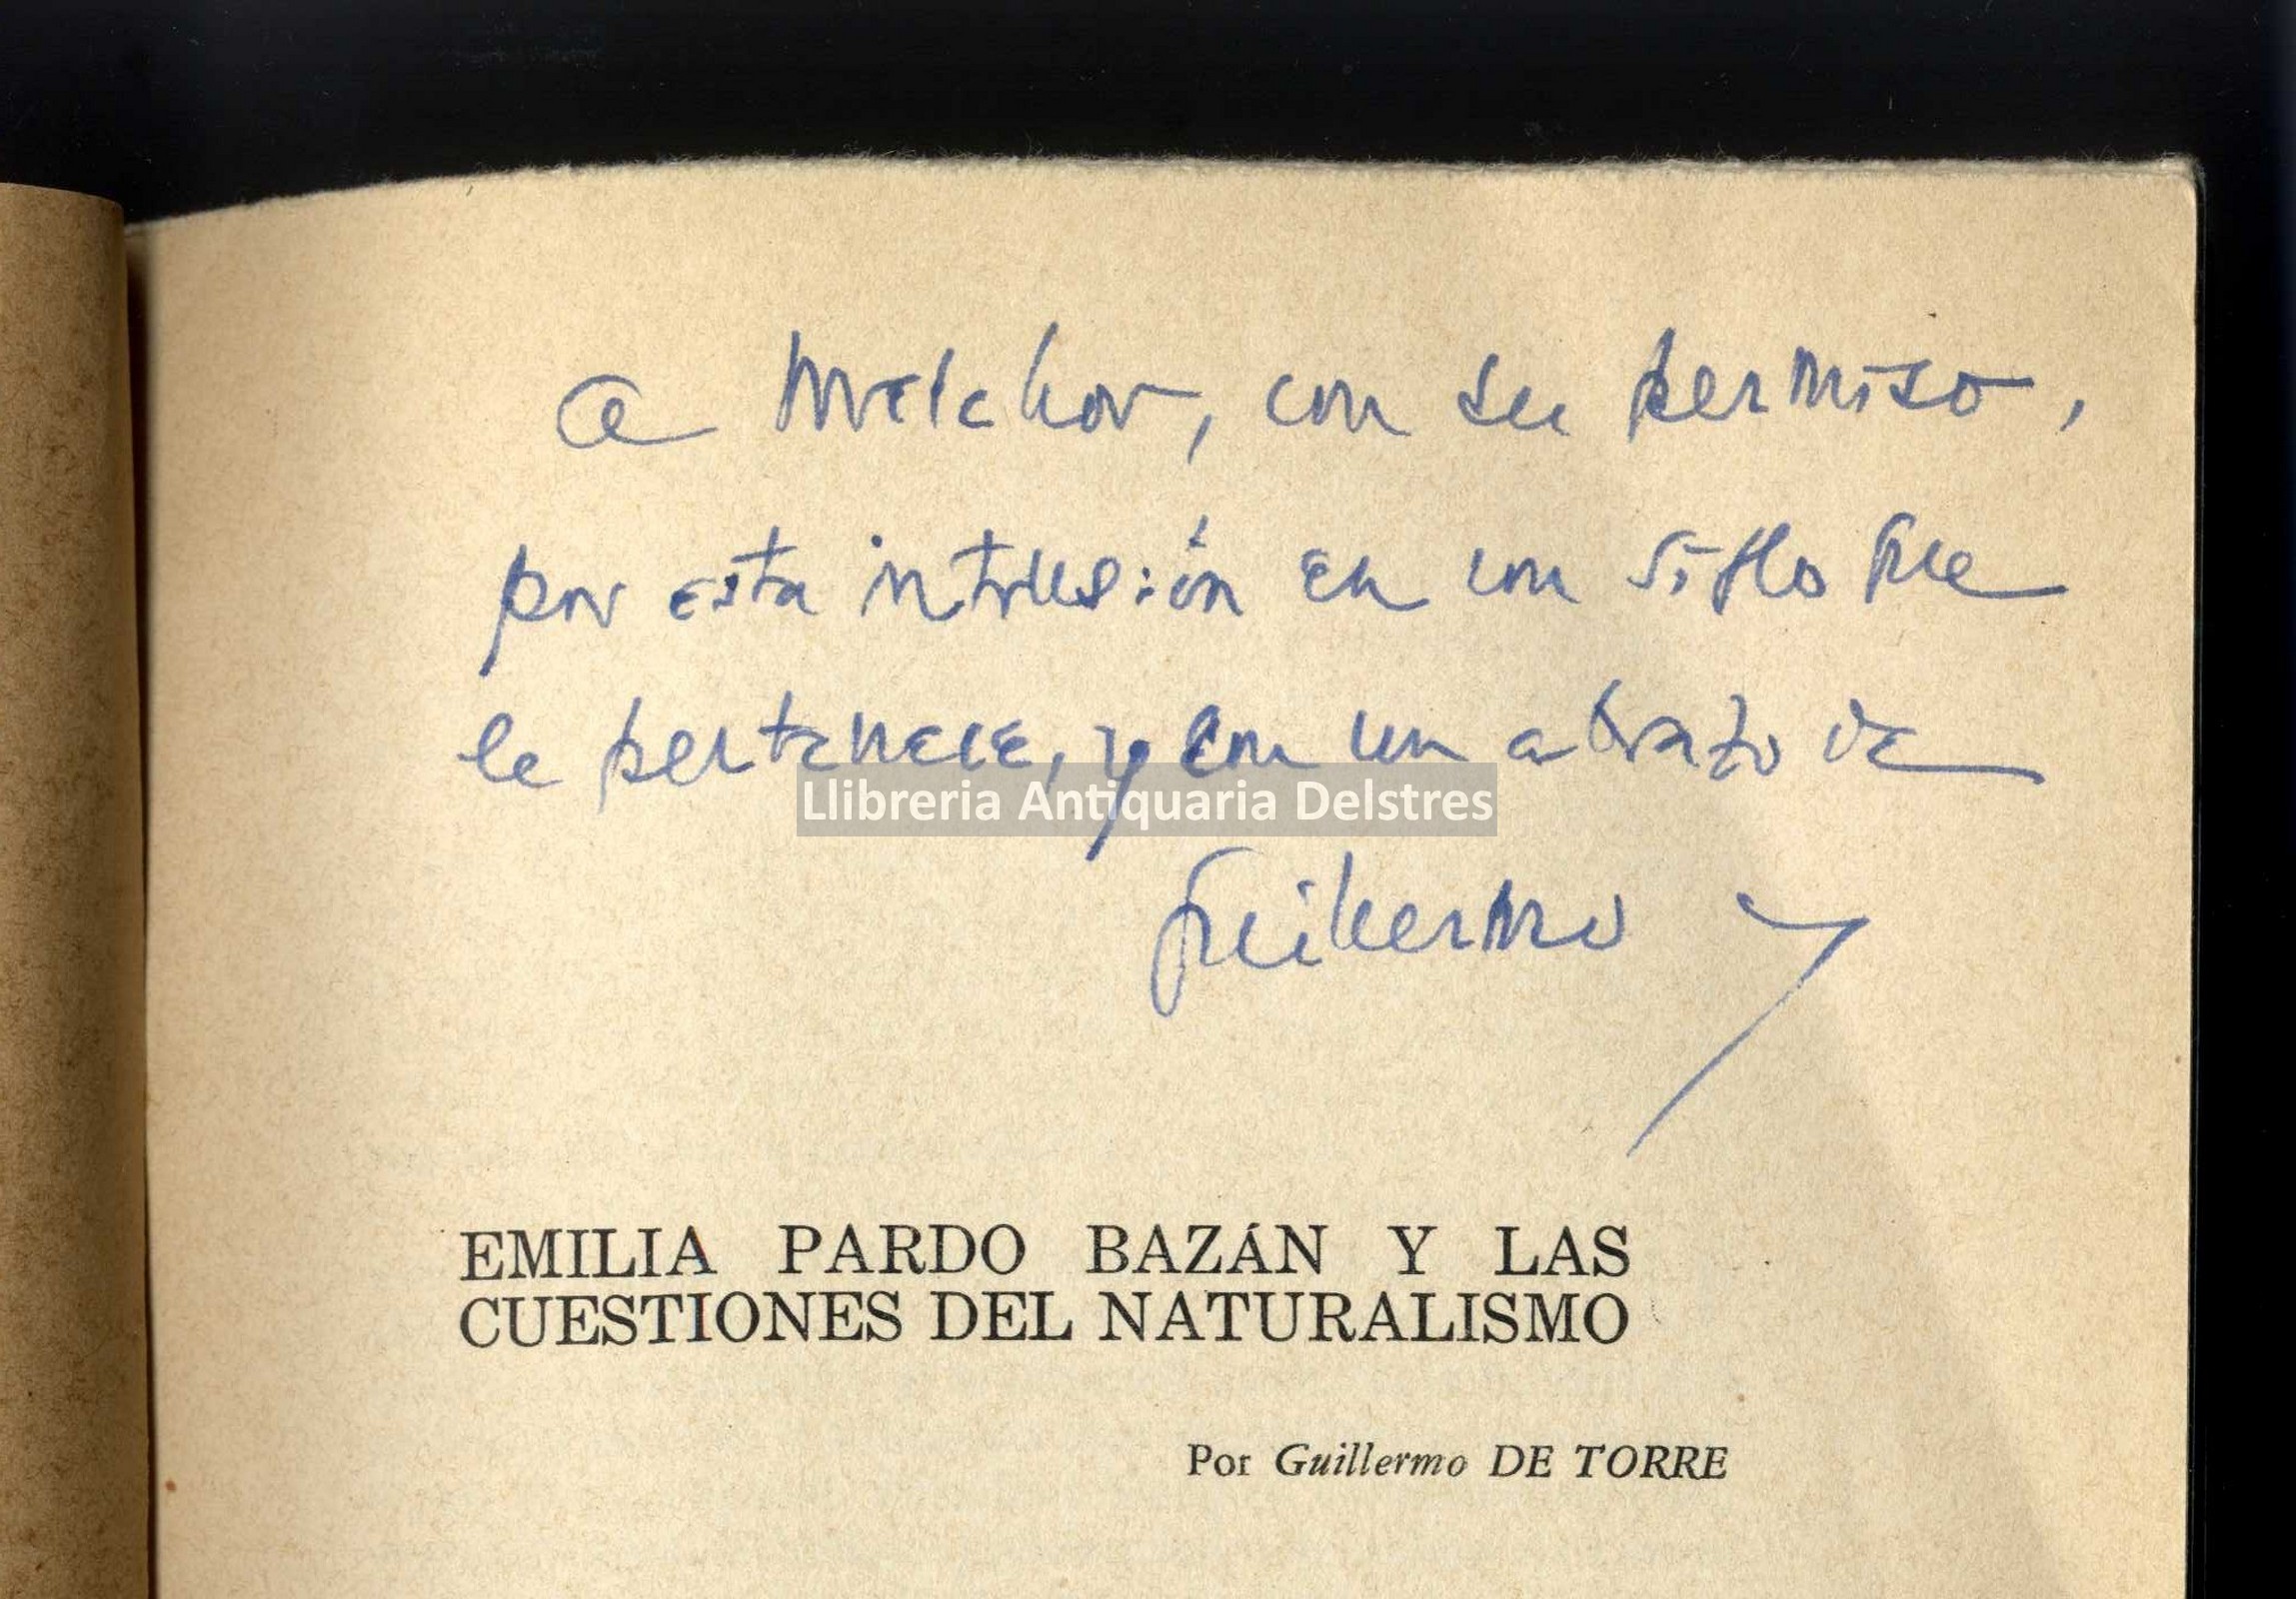 a Melchor, con su permiso,
por esta intrusión en un siglo que
le pertenece, y con un abrazo de
Llibreria Antiquaria Delstres
Guillermo
EMILIA PARDO BAZÁN Y LAS
CUESTIONES DEL NATURALISMO
Por Guillermo DE TORRE